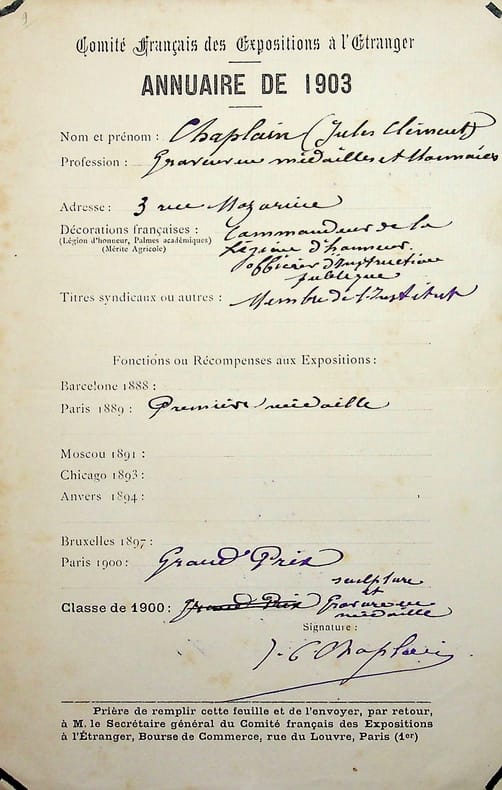 Comité Français des Expositions à l'Etranger
ANNUAIRE DE 1903
Nom et prénom : Chaplain (Jules Clément)
Profession : Graveur en médailles et Monnaies
Adresse : 3 rue Mazarine
Décorations françaises : Commandeur de la
(Légion d'honneur, Palmes académiques)
(Mérite Agricole)
Légion d'honneur.
officier d'Instruction
publique
Titres syndicaux ou autres : Membre de l'Institut
Fonctions ou Récompenses aux Expositions :
Barcelone 1888 :
Paris 1889 : Première médaille
Moscou 1891 :
Chicago 1893 :
Anvers 1894 :
Bruxelles 1897 :
Paris 1900 : Grand Prix
Classe de 1900 : Grand Prix sculpture
et
Gravure en
médaille
Signature :
J. C. Chaplain
Prière de remplir cette feuille et de l'envoyer, par retour,
à M. le Secrétaire général du Comité français des Expositions
à l'Étranger, Bourse de Commerce, rue du Louvre, Paris (1er)